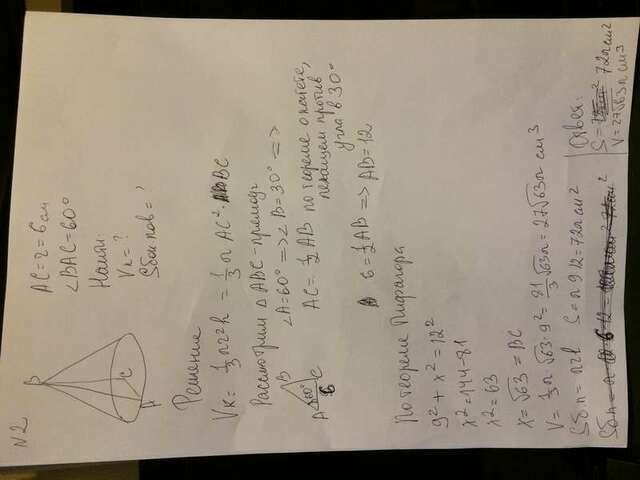 N2
B
C
A
AC=r=6см
∠BAC=60°
Найти:
Vк=?
Sбок пов=?
Решение
Vк=1/3πr²h=1/3πAC²·BC
Рассмотрим ΔABC-прямоуг
∠A=60°=>∠B=30°=>
AC=1/2AB по теореме о катете,
лежащем против
угла в 30°
A 60° B C
6
6=1/2AB=>AB=12
По теореме Пифагора
9²+x²=12²
x²=144-81
x²=63
x=√63=BC
V=1/3π·√63·9²=81/3√63π=27√63π см³
Sбп=πrl S=π9·12=72π см²
Ответ:
S=72π см²
V=27√63π см³